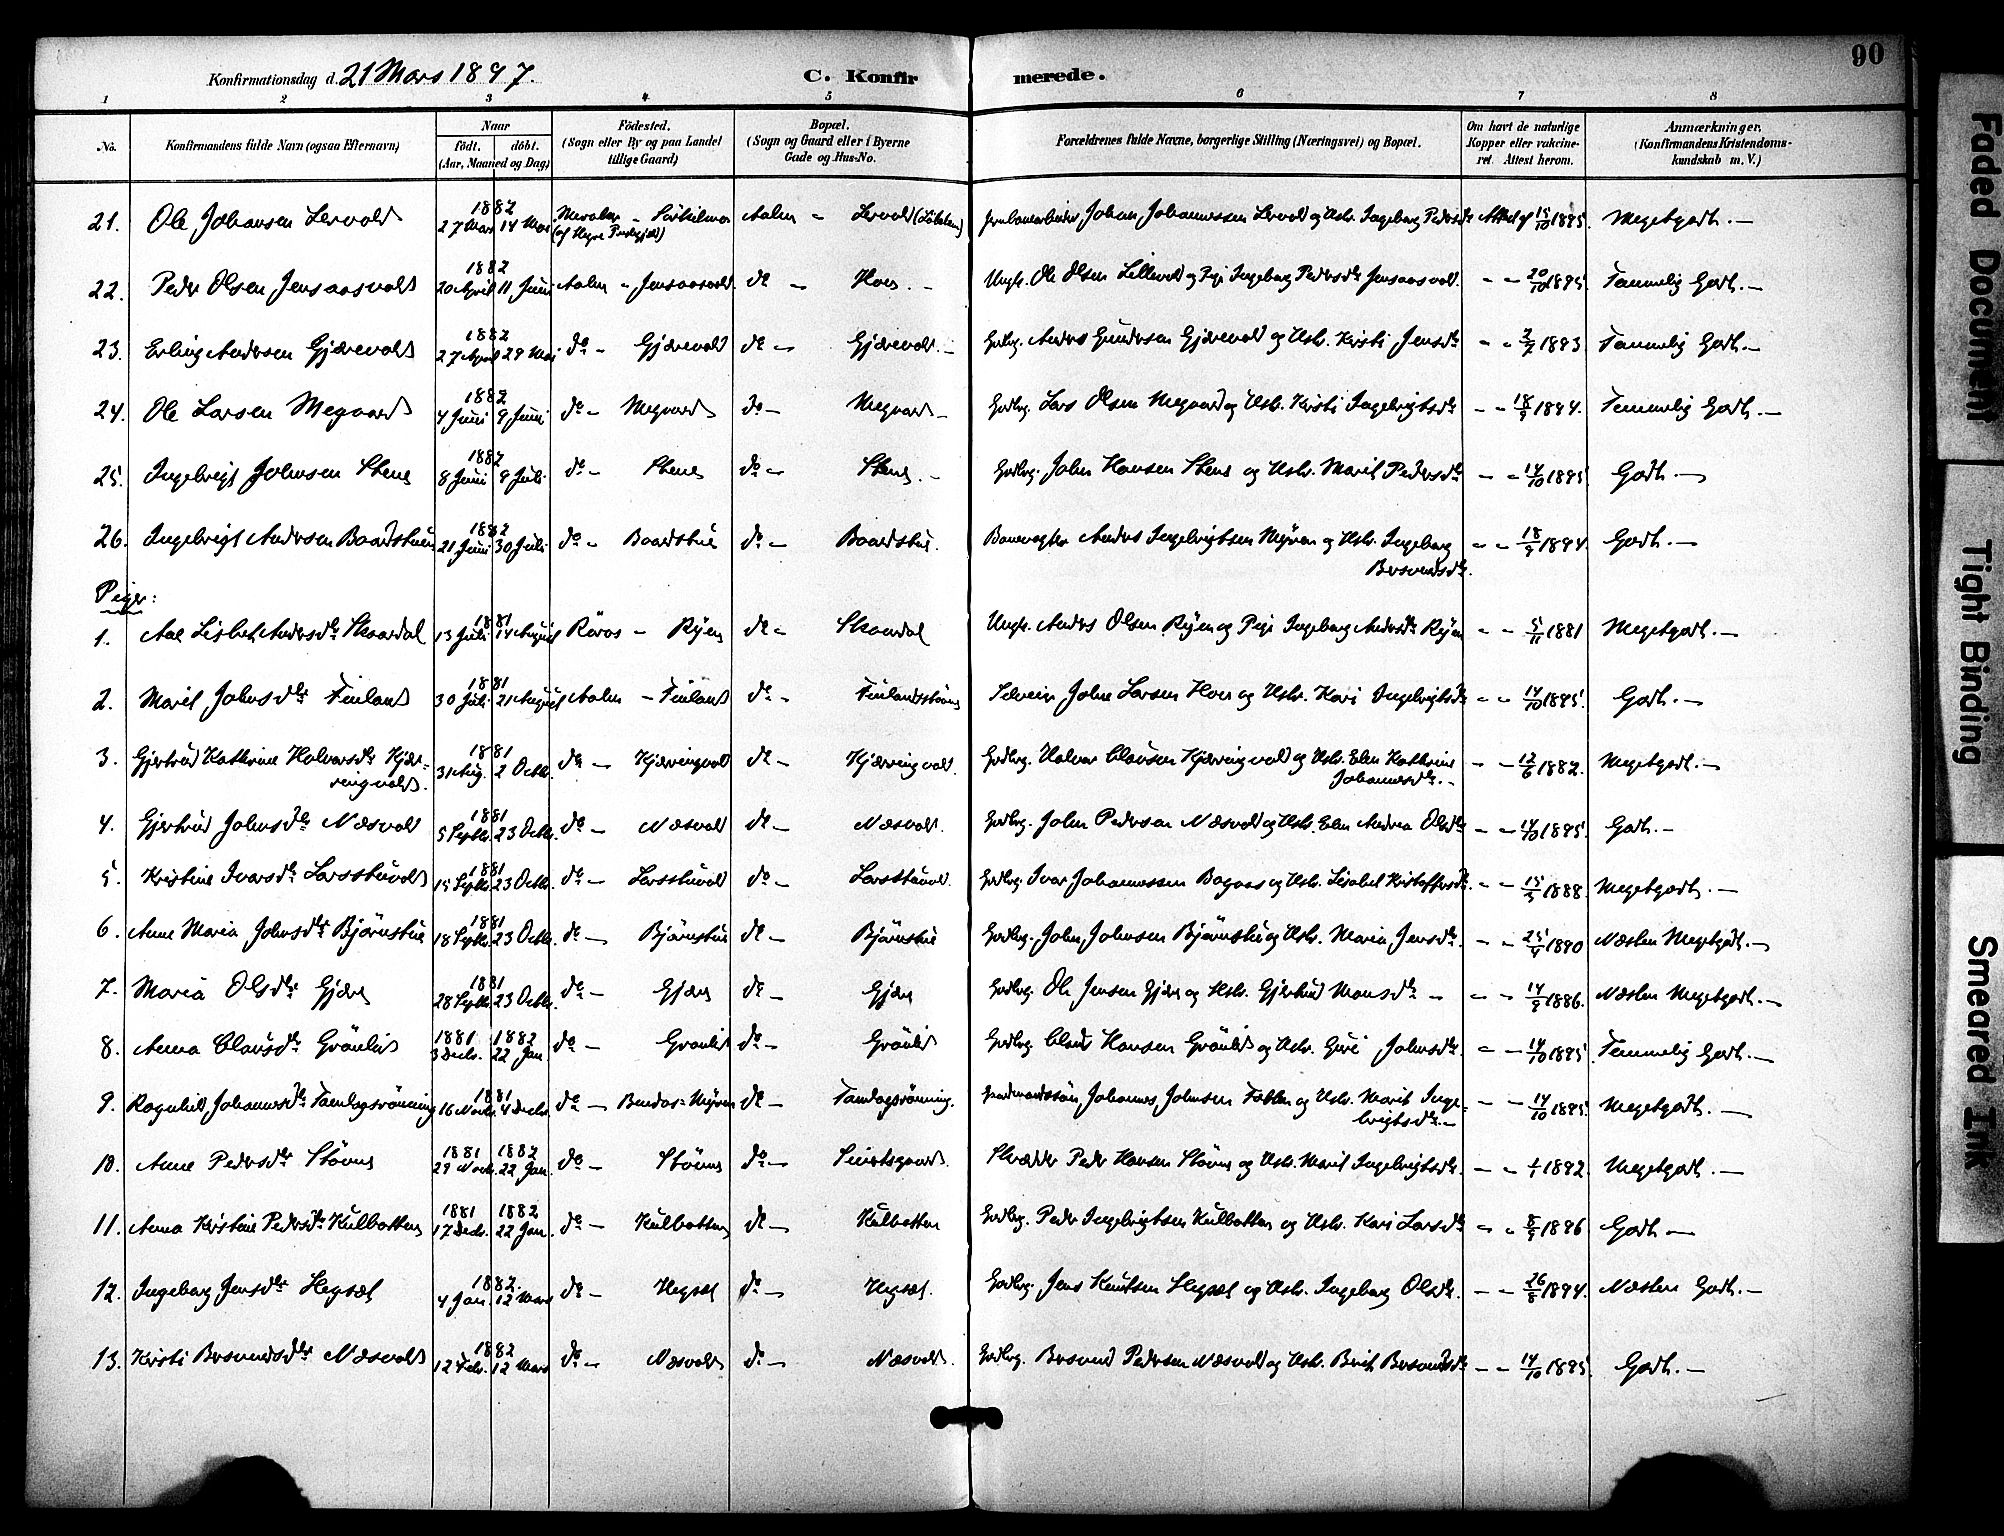 90
Konfirmationsdag d. 21 Mars 1897. C. Konfirmerede.
1 2 3 4 5 6 7 8
No. Konfirmandens fulde Navn (ogsaa Efternavn) Naar födt. döbt. (Aar, Maaned og Dag) Födested. (Sogn eller By og paa Landet tillige Gaard) Bopæl. (Sogn og Gaard eller i Byerne Gade og Hus-No. Forældrenes fulde Navne, borgerlige Stilling (Næringsvei) og Bopæl. Om havt de naturlige Kopper eller vakcineret. Attest herom. Anmærkninger. (Konfirmandens Kristendomskundskab m. V.)
21. Ole Johansen Lervold 1882 27 Mars 14 Mai Meraker (af Hegre Præstegjæld) Aalen - Lervold Johan Johannessen Lervold og Hstr. Ingeborg Pedersdtr Attest af 15/10 1895. Megetgodt. -
22. Peder Olsen Jensaasvold 1882 20 April 11 Juni Aalen - Jensaasvold do - Hov. - Ungk. Ole Olsen Lillevold og Pige Ingeborg Pedersdtr Jensaasvold. - - 20/10 1895 Temmelig Godt. -
23. Erling Andersen Gjærevold 1882 27 April 29 Mai do - Gjærevold do - Gjærevold. - Gaardbrg. Anders Gundersen Gjærevold og Hstr. Kristi Jensdtr - - 2/7 1893 Temmelig Godt. -
24. Ole Larsen Megaard 1882 4 Juni 9 Juni do - Megaard do - Megaard - Gaardbrg. Lars Olsen Megaard og Hstr. Kristi Ingebrigtsdtr - - 18/9 1894. Temmelig Godt. -
25. Ingebrigt Johnsen Stene 1882 8 Juni 9 Juli do - Stene do - Stene. - Gaardbrg. John Hansen Stene og Hstr. Marit Pedersdtr - - 14/10 1895 Godt. -
26. Ingebrigt Andersen Baardstuen 1882 21 Juni 30 Juli do - Baardstue do - Baardstue. Banevogter Anders Ingebrigtsen Myren og Hstr. Ingeborg Bersvendsdtr. - - 18/9 1894. Godt. -
Piger:
1. Ane Lisbet Andersdtr Skaardal 1881 13 Juli 14 August Röros - Ryen do - Skaardal Ungk. Anders Olsen Ryen og Pige Ingeborg Andersdtr Ryen - - 5/11 1881 Megetgodt. -
2. Marit Johnsdtr Finland 1881 30 Juli 21 August Aalen - Finland do - John Larsen Hov og Hstr. Kari Ingebrigtsdtr - - 14/10 1895. Godt. -
3. Gjertrud Kathrine Halvorsdtr Kjærringvold. 1881 31 Aug. 2 Octbr. do - Kjærringvold do - Kjærringvold. Gaardbrg. Halvor Clausen Kjærringvold og Hstr. Elen Kathrine Johannesdtr. - - - 12/6 1882. Megetgodt. -
4. Gjertrud Johnsdtr Næsvold 1881 5 Septbr. 23 Octbr. do - Næsvold do - Næsvold. Gaardbrg. John Pedersen Næsvold og Hstr. Elen Andrea Olsdtr - - 14/10 1895. Godt. -
5. Kristine Ivarsdtr Larsstuvold 1881 15 Septbr 23 Octbr. do - Larsstuvold do - Larsstuvold. Gaardbrg. Ivar Johannessen Bogaas og Hstr. Lisabet Kristoffersdtr. - - 15/5 1888 Megetgodt. -
6. Anne Maria Johnsdtr Bjørnstue 1881 18 Septbr. 23 Octbr. do - Bjørnstue do - Bjørnstue Gaardbrg. John Johnsen Bjørnstue og Hstr. Maria Jensdtr. - - 25/4 1890 Næsten Megetgodt. -
7. Maria Olsdtr Gjære 1881 28 Septbr. 23 Octbr. do - Gjære do - Gjære Gaardbrg. Ole Jensen Gjære og Hstr. Gjertrud Monsdtr - - - 14/9 1886. Næsten Megetgodt. -
8. Anna Clausdtr Grönlid 1881 3 Decbr. 1882 22 Jan do - Grönlid do - Grönlid Gaardbrg. Claus Hansen Grönlid og Hstr. Guri Johnsdtr. - - 14/10 1895 Temmelig Godt. -
9. Ragnhild Johannesdtr Tamlagsrönning 1881 16 Novbr. 4 Decbr. do - do - Tamlagsrönning. Gaardmandssön Johannes Johnsen og Hstr. Marit Ingebrigtsdtr. - - - 14/10 1895. Megetgodt. -
10. Anne Pedersdtr Støvne 1881 29 Novb. 1882 22 Jan. do - Støvne do - Skrædder Peder Hansen Støvne og Hstr. Marit Ingebrigtsdtr. - - 1/1 1892. Megetgodt. -
11. Anna Kristine Pedersdtr Kulbotten 1881 17 Decbr. 1882 22 Jan. do - Kulbotten do - Kulbotten Gaardbrg. Peder Ingebrigtsen Kulbotten og Hstr. Kari Larsdtr - - 8/9 1886 Godt -
12. Ingeborg Jensdtr Hegset 1882. 4 Jan. 12 Mars do - Hegset do - Hegset. Gaardbrg. Jens Knutsen Hegset og Hstr. Ingeborg Olsdtr. - - 26/8 1894. Næsten Godt. -
13. Kristi Bersvendsdtr Næsvold 1882 12 Febr. 12 Mars do - Næsvold do - Næsvold. Gaardbrg. Bersvend Pedersen Næsvold og Hstr. Berit Bersvendsdtr - - 14/10 1895 Godt. -
Faded Document
Tight Binding
Smeared Ink